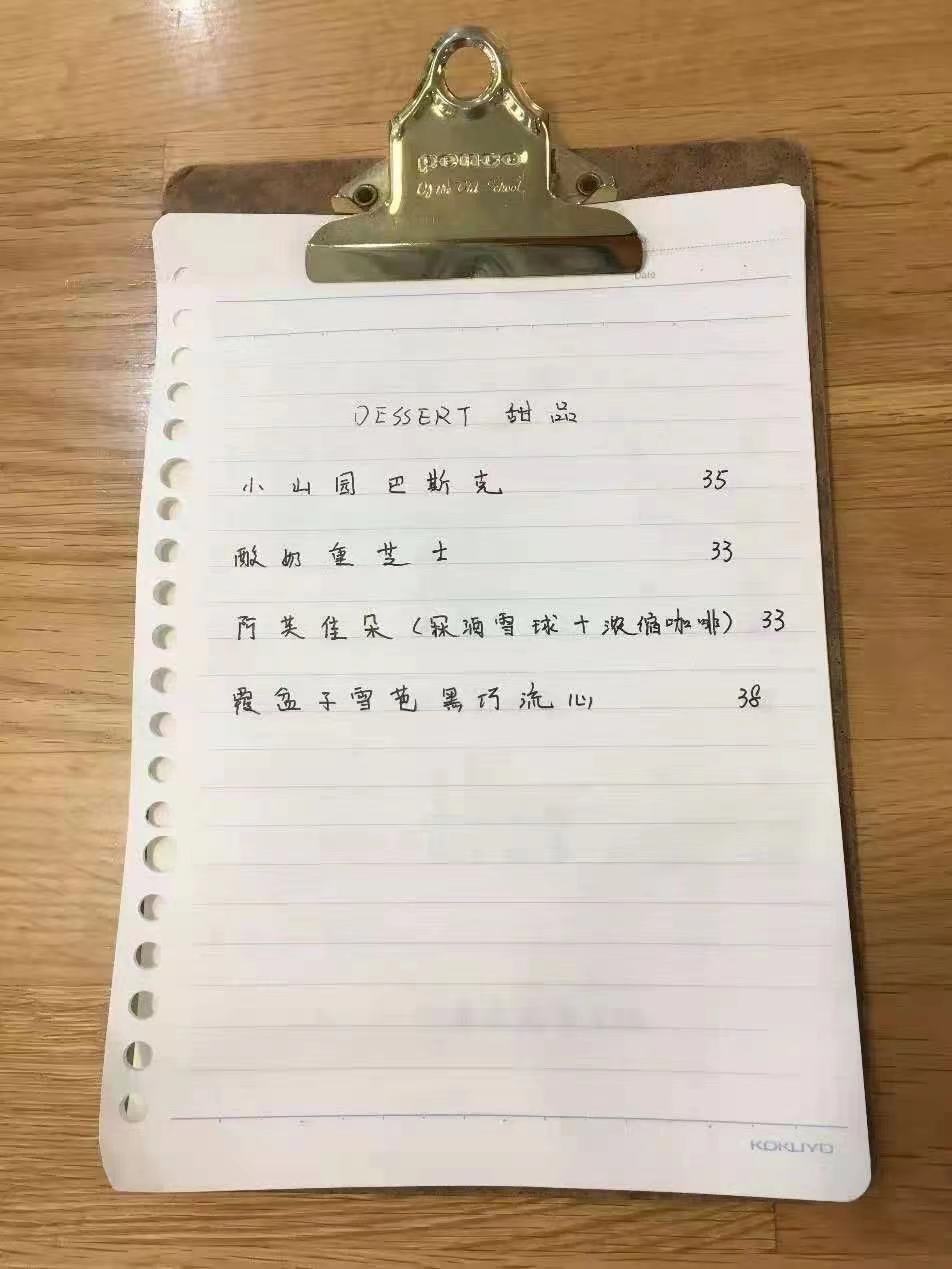 penco
Of the Old School
Date
DESSERT 甜品
小山园巴斯克 35
酸奶重芝士 33
阿芙佳朵(冧酒雪球+浓缩咖啡) 33
覆盆子雪芭黑巧流心 38
KOKUYO